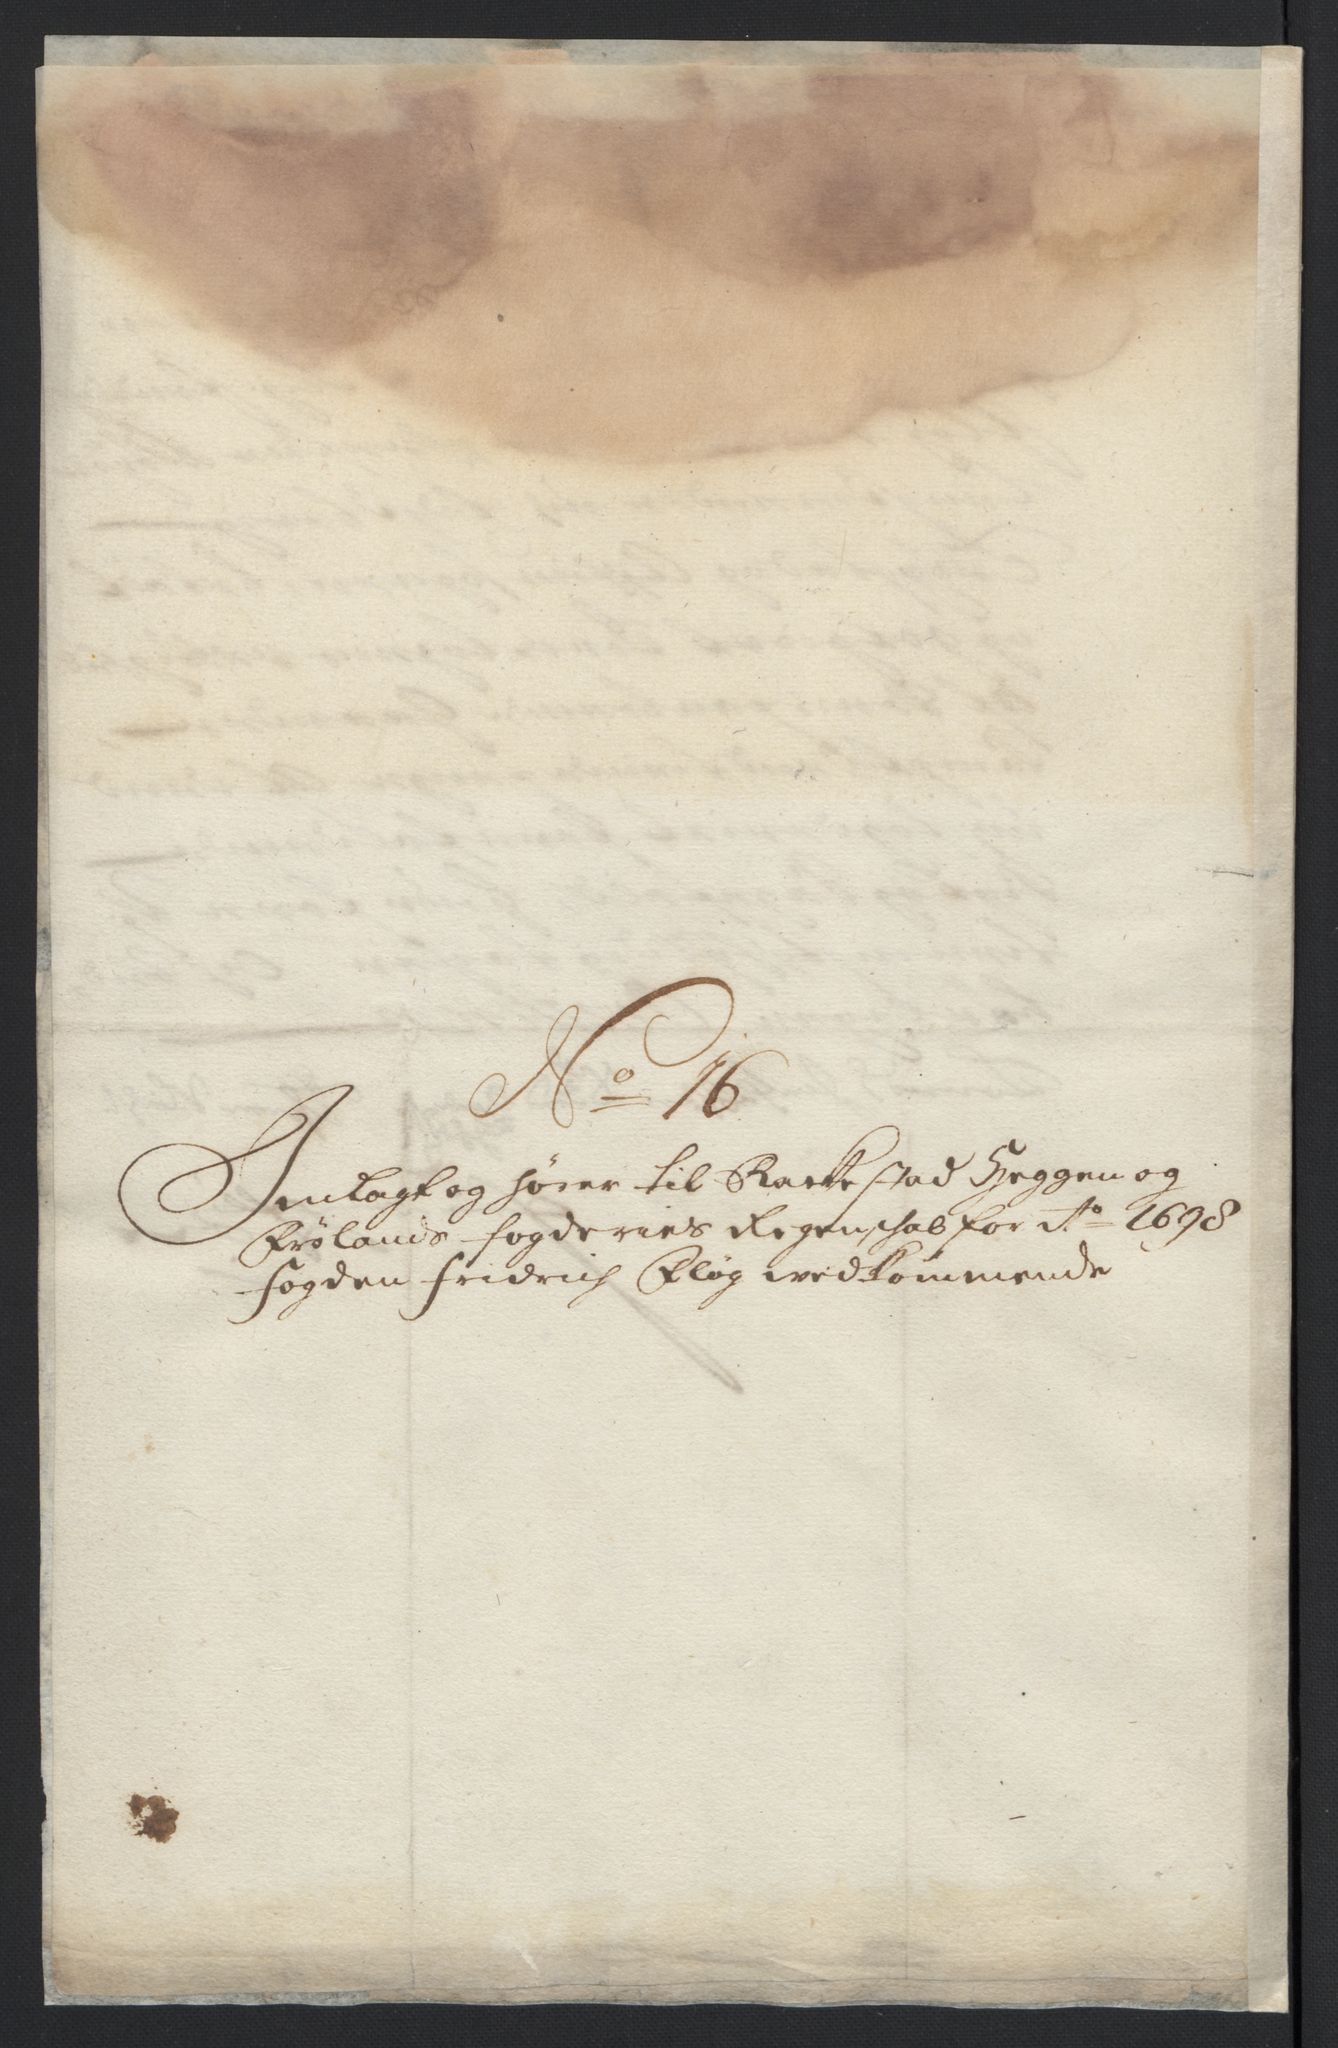 No 16
Indlagt og hörer til Rackestad Heggen og
Frölands fogderies Regenschab for Ao 1698
fogden Fridrich Flög wedkommende